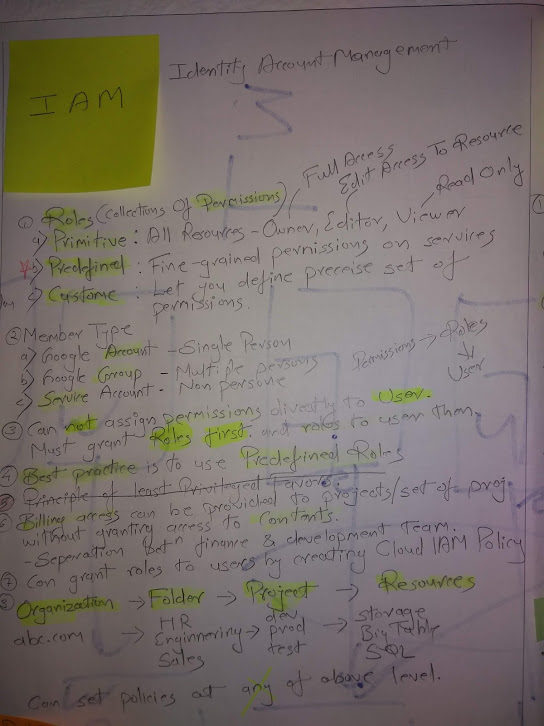 IAM
Identity Account Management
Full Access
Edit Access To Resource
Read Only
① Roles (Collections Of Permissions)
a) Primitive : All Resources - Owner, Editor, Viewer
b) Predefined : Fine-grained permissions on services
c) Custome : Let you define precise set of
permissions.
② Member Type
a) Google Account - Single Person
b) Google Group - Multiple persons
c) Service Account - Non persone
Permissions → Roles
↓
User
③ Can not assign permissions directly to User.
Must grant Roles first. and roles to user then.
④ Best practice is to use Predefined Roles
⑤ Principle of least Privileged Favors.
⑥ Billing access can be provided to projects/set of proj.
without granting access to Contents.
- Seperation Betn finance & development Team.
⑦ Can grant roles to users by creating Cloud IAM Policy
⑧ Organization → Folder → Project → Resources
abc.com → HR dev storage
Enginnering → prod → Big Table
Sales test SQL
Can set policies at any of above level.